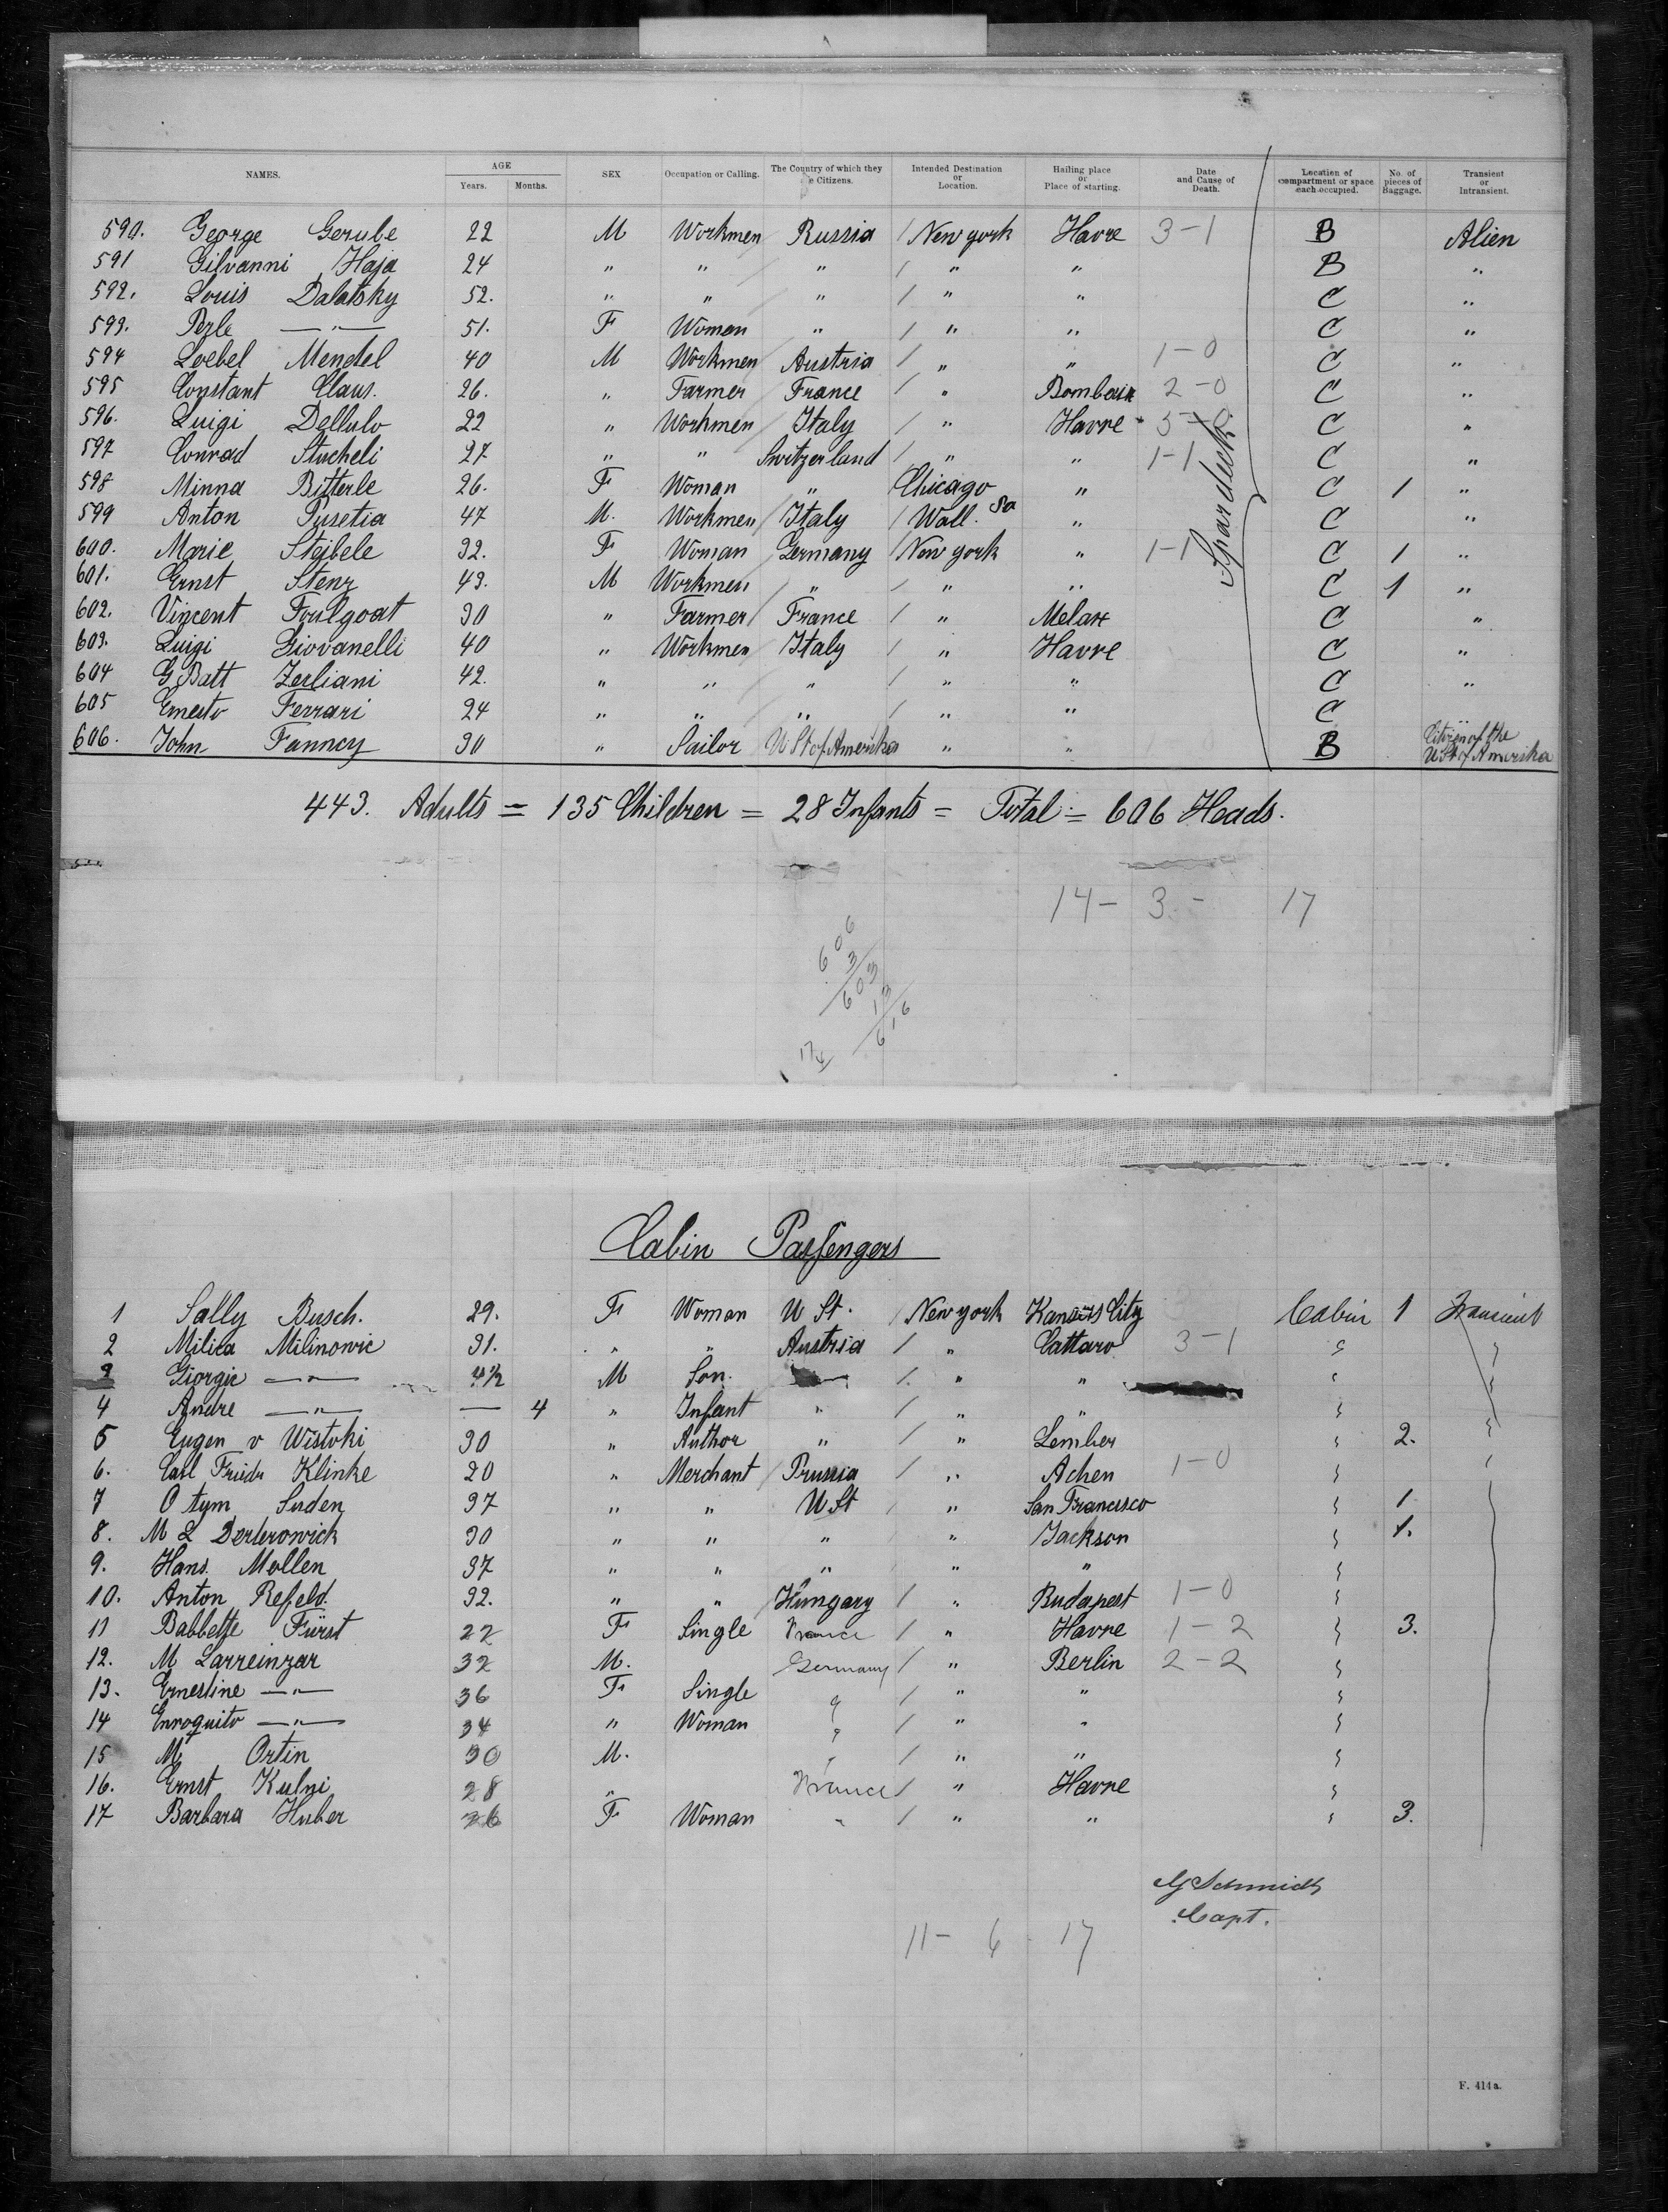 NAMES. AGE Years. Months. SEX Occupation or Calling. The Country of which they are Citizens. Intended Destination or Location. Hailing place or Place of starting. Date and Cause of Death. Location of compartment or space each occupied. No. of pieces of Baggage. Transient or Intransient.
590. George Gerube 22 M Workmen Russia New york Havre 3-1 B Alien
591 Gilvanni Haja 24 " " " " " B "
592. Louis Dalatsky 52. " " " " " C "
593. Perle —"— 51. F Woman " " " C "
594 Loebel Mendel 40 M Workmen Austria " " 1-0 C "
595 Constant Claus. 26. " Farmer France " 2-0 C "
596. Luigi Dellulo 22 " Workmen Italy " Havre C "
597 Conrad Stucheli 27 " " Switzerland " " 1-1 C "
598 Minna Bitterle 26. F Woman " Chicago " C 1 "
599 Anton Pusetia 47 M. Workmen Italy Wall. " C "
600. Marie Stejbele 32. F Woman Germany New york " 1-1 C 1 "
601. Ernst Stenz 43. M Workmen " " " C 1 "
602. Vincent Foulgoat 30 " Farmer France " C "
603. Luigi Giovanelli 40 " Workmen Italy " Havre C "
604 G Batt Zerliani 42. " " " " " C "
605 Ernesto Ferrari 24 " " " " " C "
606. John Fanney 30 " Sailor U St of Amerika " " B Citizen of the U St of Amerika
Spardeck
443. Adults = 135 Children = 28 Infants = Total = 606 Heads.
14 - 3 - 17
606
3
603
13
616
17
Cabin Passengers
1 Sally Busch. 29. F Woman U St. New york Kansas City Cabin 1 Transient
2 Milica Milinowic 31. " " Austria " Cattaro 3-1 "
3 Giorgje —"— 4½ M Son. " " "
4 Andre —"— — 4 " Infant " " " "
5 Eugen v Wistoki 30 " Author " " Lember " 2. "
6. Carl Friedr Klinke 20 " Merchant Prussia " Achen 1-0 "
7 O tym Suden 37 " " U St " San Francisco " 1
8. M L Derterowick 30 " " " " Jackson " 1.
9. Hans. Mollen 37 " " " " " "
10. Anton Refeld. 32. " " Hungary " Budapest 1-0 "
11 Babbette Fürst 22 F Single France " Havre 1-2 " 3.
12. M Larreinzar 32 M. Germany " Berlin 2-2 "
13. Ernestine —"— 36 F Single " " " "
14 Enroquito —"— 34 " Woman " " " "
15 M Ortin 30 M. " " " "
16. Ernst Kulni 28 " France " Havre "
17 Barbara Huber 26 F Woman " " " " 3.
G Schmidt
Capt.
11 - 6 17
F. 414a.